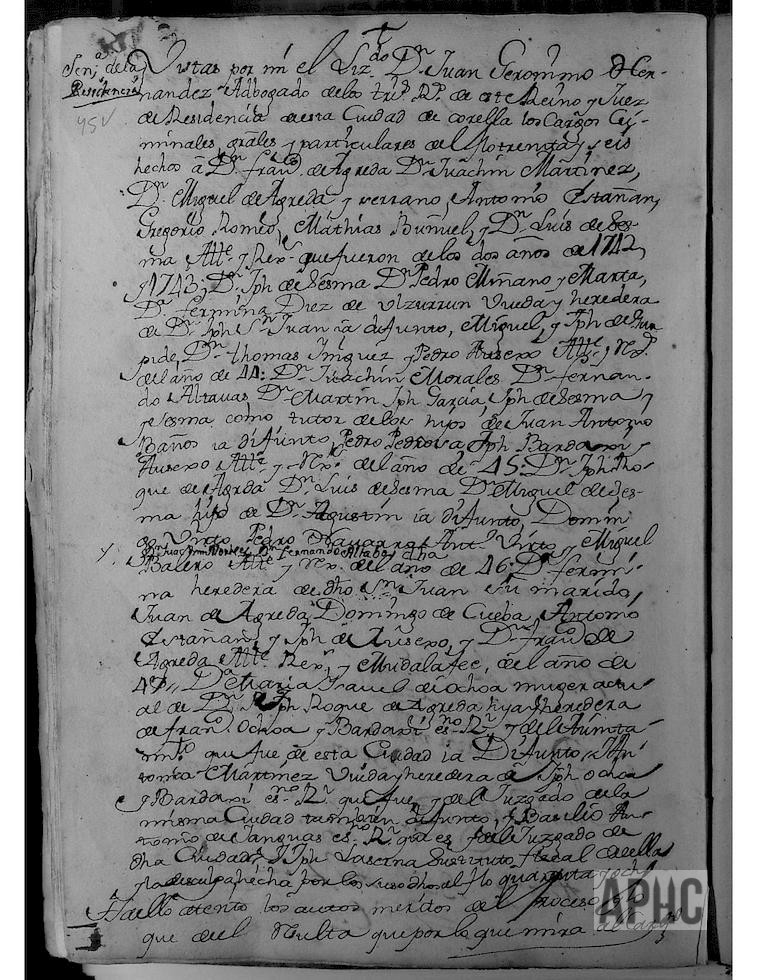 Sen.ª de la
Residencia
45V
Vistas por mi el Liz.do D.n Juan Geronimo Her-
nandez Abogado de los tri.s R.s de este Reino y Juez
de Residencia de esta Ciudad de corella los Cargos Cri-
minales, grales y particulares del fo treinta y seis
hechos â D.n fran.co de Agreda D.n Juachin Martinez,
D.n Miguel de Agreda y serrano, Antonio Estañan,
Gregorio Romeo, Mathias Buñuel, y D.n Luis de Ses-
ma All.e y Rex.s que fueron de los dos años de 1742
y 1743, D.n Jph de Sesma D.n Pedro Miñano y Marta,
D.ª fermina Diez de Vizurrun Viuda y heredera
de D.n Jph S.n Juan ia difunto, Miguel, y Jph de Gur-
pide, D.n thomas Yñiguez y Pedro Ausexo All.e y
del año de 44: D.n Juachin Morales D.n fernan-
do Altauas D.n Martin Jph Garcia, Jph de Sesma y
y Sesma como tutor de los hijos de Juan Antonio
Baños ia difunto, Pedro Pedrola, Jph Bardaxi y
Ausexo All.e y Rex.s del año de 45: D.n Jph Ro-
que de Agreda D.n Luis de Sesma D.n Miguel de Ses-
ma hijo de D.n Agustin ia difunto, Domin
go Virto, Pedro Nauarro Ant.o Virto y Miguel
y. D.n Fernando Altabas, dha
Balero All.e y Rex.s del año de 46: D.ª fermi-
na heredera de dho S.n Juan su marido,
Juan de Agreda, Domingo de Cueba, Antonio
Estañan, y Jph de Ausexo, y D.n fran.co de
Agreda All.e Rex.s y Mudalafee, del año de
47, D.ª Maria Isauel de Ochoa muger actu-
al de D.n Jph Roque de Agreda hija y heredera
de fran.co Ochoa y Bardaxi es.no R.l y del Aiunta-
mi.to que fue de esta Ciudad ia Difunto, An-
tonia Martinez Viuda y heredera de Jph ochoa
y Bardaxi es.no R.l que fue y del Juzgado de la
misma Ciudad tambien difunto, y Basilio An-
tonio de Sanguas es.no R.l que es del Juzgado de
dha Ciudad y Jph Laserna Sustituto fiscal de ella
y la desculpa hecha por los susodichos al fo quarenta y ocho
Fallo atento los autos meritos del Proceso y lo
que de el Resulta que por lo que mira al Cargo
APHC